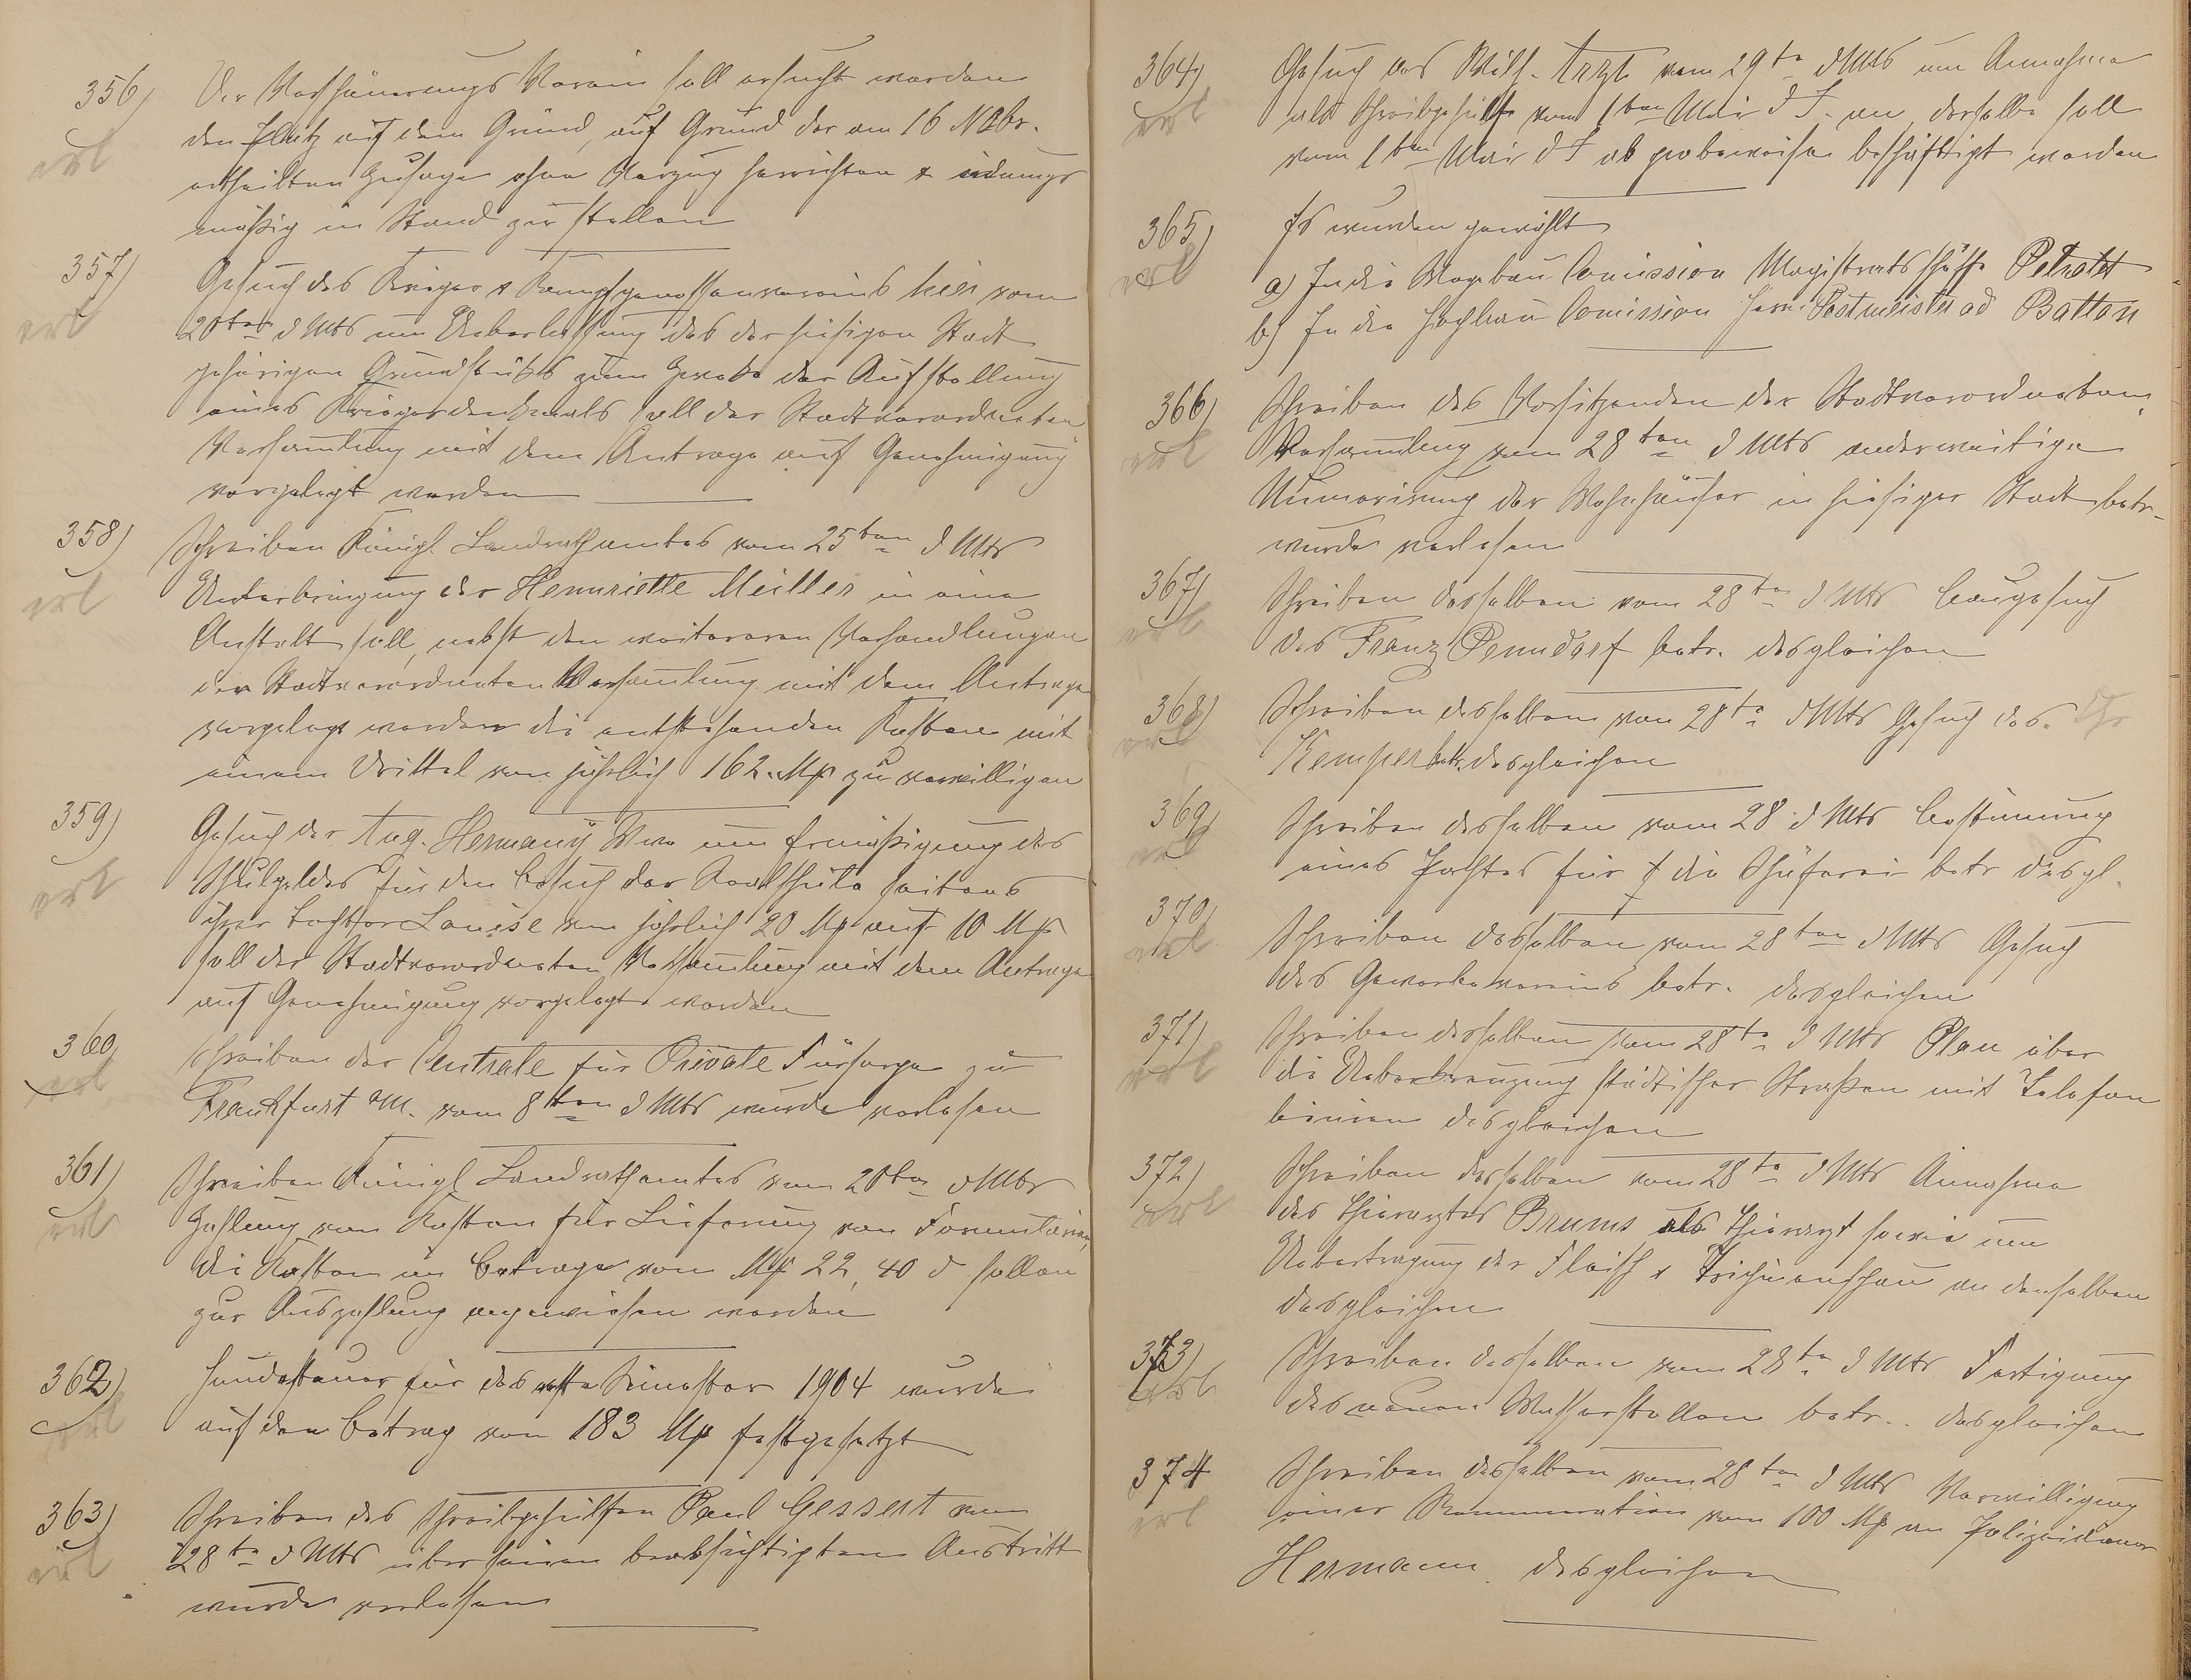 356) Der Verschönerungs Verein soll ersucht werden
erl den Platz auf dem Grund, auf Grund der am 16 Nvbr.
ertheilten Zusage ohne Verzug herrichten &
mäßig in Stand zu stellen
357) Gesuch des Krieger & Kampfgenossenvereins hier vom
erl 20ten d Mts um Ueberlassung des der hiesigen Stadt
gehörigen Grundstücks zum Zwecke der Aufstellung
eines Kriegerdenkmals soll der Stadtverordneten
Versamlung mit dem Antrage auf Genehmigung
vorgelegt werden
358) Schreiben Königl Landrathsamtes vom 25ten d Mts
erl Unterbringung der Hennriette Meiller in eine
Anstalt soll, nebst den weiteren Verhandlungen
der Stadtverordneten Versamlung mit dem Antrage
vorgelegt werden die entstehenden Kosten mit
einem Drittel von jährlich 162. Mk zu verwilligen
359) Gesuch der Aug. Hermany Wwe um Ermäßigung des
erl Schulgeldes für den Besuch der Realschule seitens
ihrer Tochter Louise von jährlich 20 Mk auf 10 Mk
soll der Stadtverordneten Versamlung mit dem Antrage
auf Genehmigung vorgelegt werden
360) Schreiben der Centrale für Private Fürsorge zu
erl Frankfurt a/M. vom 8ten d Mts wurde verlesen
361) Schreiben Königl Landrathsamtes vom 20ten d Mts
erl Zahlung von Kosten für Lieferung von Formularien,
die Kosten im Betrage von Mk 22,40 d sollen
zur Auszahlung angewiesen werden
362) Hundesteuer für das erste Semester 1904 wurde
erl auf den Betrag von 183 Mk festgesetzt
363) Schreiben des Schreibgehülfen Paul Gessert vom
erl 28te d Mts über seinen beabsichtigten Austritt
wurde verlesen
364) Gesuch des Wilh. Arzt vom 29te d Mts um Annahme
erl als Schreibgehülfe vom 1ten Mai d J. an, derselbe soll
vom 1ten Mai d J ab probeweise beschäftigt werden
365) Es wurden gewählt
erl a) In die Wegebau Comission Magistratsschöffe
b) In die Hochbau Comission Herr Postmeister ad Batton
366) Schreiben des Vorsitzenden der Stadtverordneten
erl Versamlung vom 28ten d Mts anderweitige
Numerirung der Wohnhäuser in hiesiger Stadt betr.
wurde verlesen
367) Schreiben desselben vom 28te d Mts Baugesuch
erl des Franz Penndorf betr. desgleichen
368) Schreiben desselben vom 28te d Mts Gesuch des
erl Kemper betr. desgleichen
369) Schreiben desselben vom 28 d Mts Bestimung
erl eines Pachtes für die Schäferei betr desgl.
370) Schreiben desselben vom 28ten d Mts Gesuch
erl des Gewerbevereins betr. desgleichen
371) Schreiben desselben vom 28te d Mts Plan über
erl die Ueberkreuzung städtischer Straßen mit Telefon
linien desgleichen
372) Schreiben desselben vom 28te d Mts Annahme
erl des Thierarztes Brums als Thierarzt sowie um
Uebertragung der Fleisch & Trichinenschau an denselben
desgleichen
373) Schreiben desselben vom 28te d Mts Fertigung
erl des neuen Wasserstollen betr.. desgleichen
374 Schreiben desselben vom 28te d Mts Verwilligung
erl einer Remuneration von 100 Mk an Polizeidiener
Hermann desgleichen